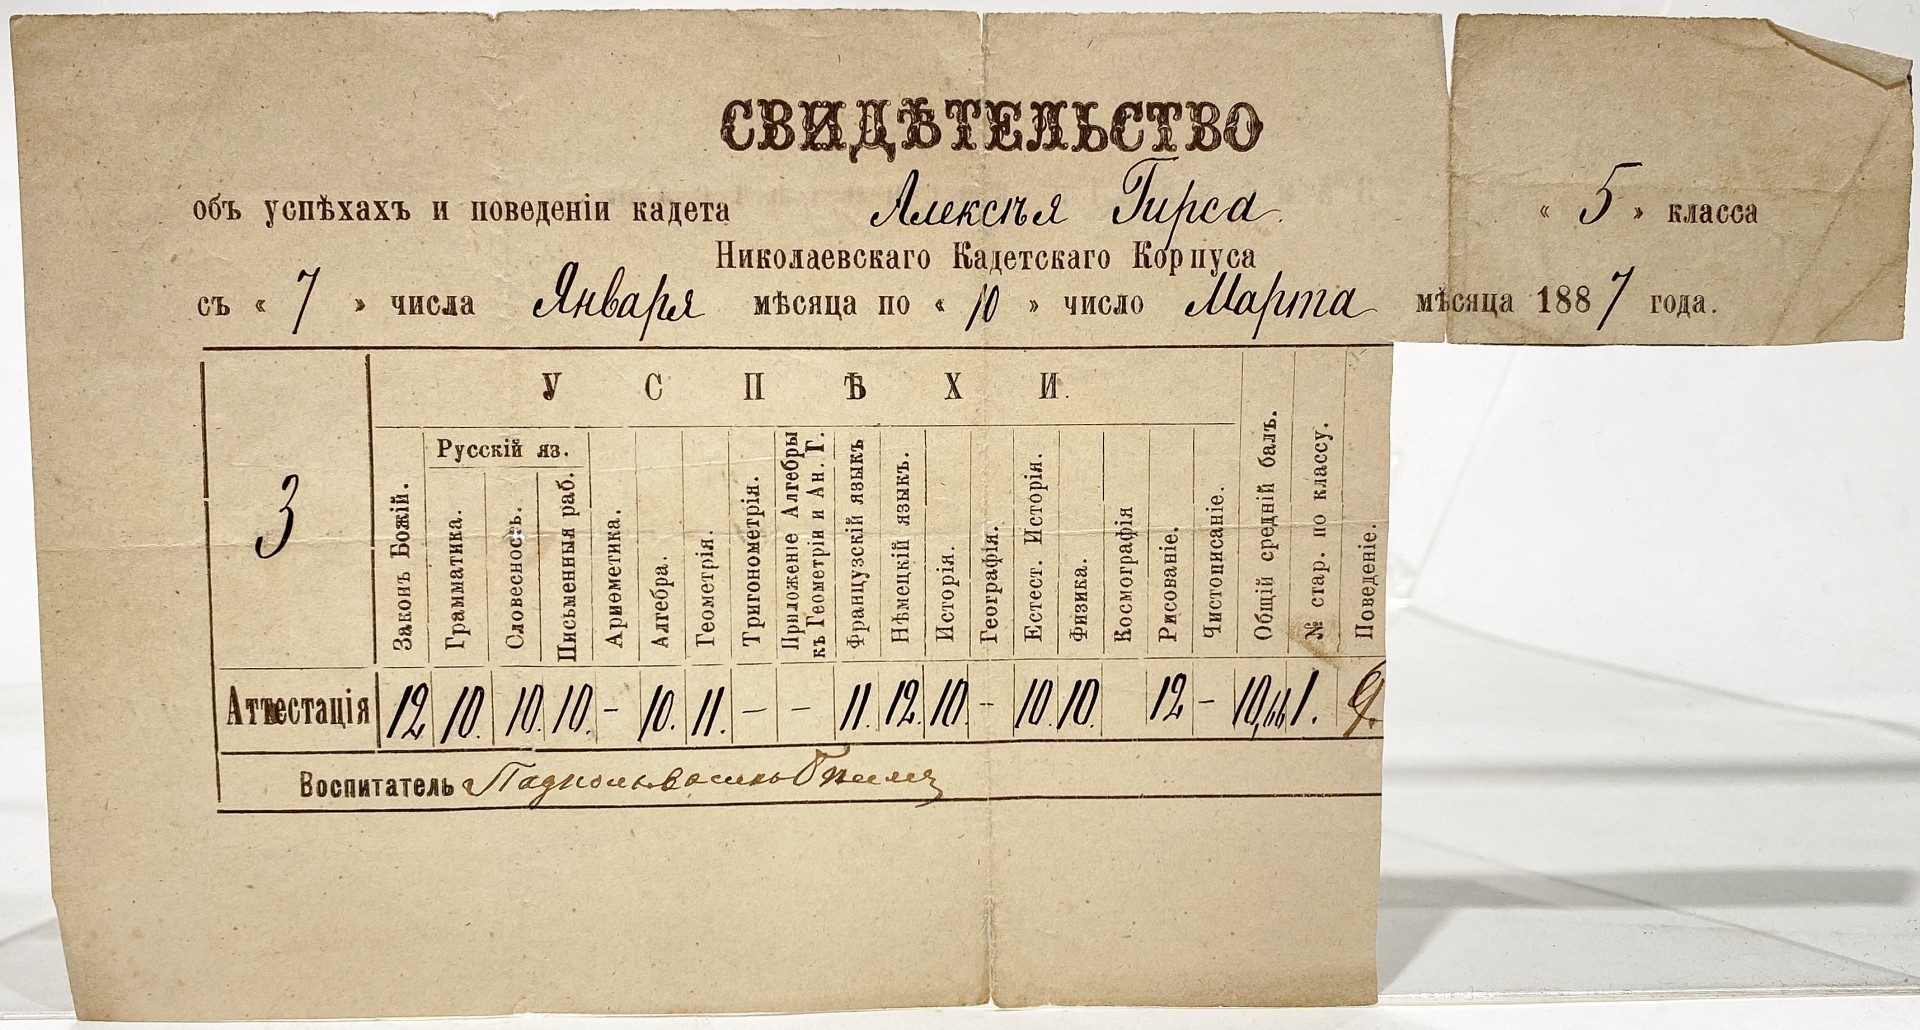 СВИДѢТЕЛЬСТВО
объ успѣхахъ и поведеніи кадета Алексѣя Гирса « 5 » класса
Николаевскаго Кадетскаго Корпуса
съ « 7 » числа Января мѣсяца по « 10 » число Марта мѣсяца 1887 года.
УСПѢХИ.
3
Русскій яз.
Законъ Божій.
Грамматика.
Словесность.
Письменныя раб.
Ариѳметика.
Алгебра.
Геометрія.
Тригонометрія.
Приложеніе Алгебры
къ Геометріи и Ан. Г.
Французскій языкъ
Нѣмецкій языкъ.
Исторія.
Географія.
Естест. Исторія.
Физика.
Космографія
Рисованіе.
Чистописаніе.
Общій средній балъ.
№ стар. по классу.
Поведеніе.
Аттестація 12 10. 10. 10. – 10. 11. – – 11. 12. 10. – 10. 10. 12 – 10,66 1. 9.
Воспитатель Подполковникъ